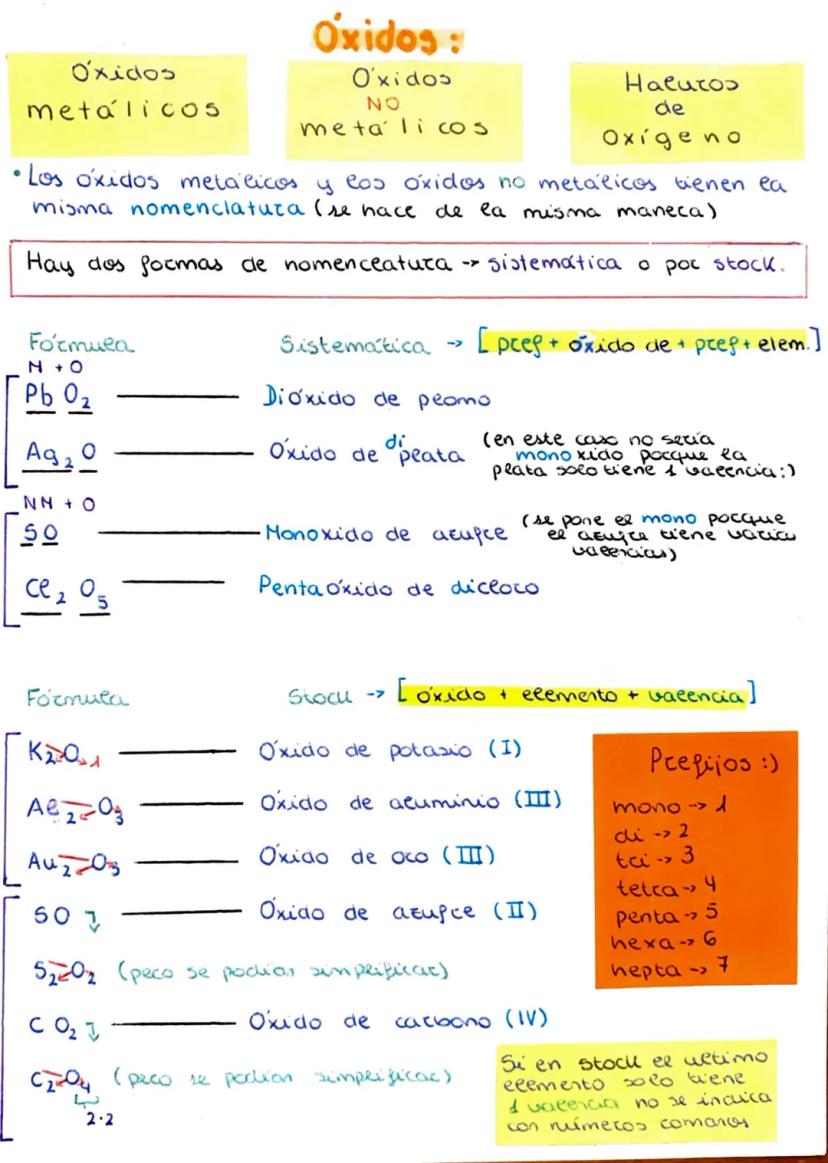 Óxidos:
Óxidos
metálicos
Óxidos
NO
metálicos
Haluros
de
Oxígeno
• Los óxidos metálicos y los óxidos no metálicos tienen la
misma nomenclatura (se hace de la misma manera)
Hay dos formas de nomenclatura -> sistemática o por stock.
Fórmula
Sistemática -> [pref + óxido de + pref + elem.]
M + O
Pb O₂ Dióxido de plomo
Ag₂ O Óxido de diplata (en este caso no sería
monoxido porque la
plata solo tiene 1 valencia:)
NM + O
SO Monoxido de azufre (se pone el mono porque
el azufre tiene varias
valencias)
Cl₂ O₅ Pentaóxido de dicloro
Fórmula
Stock -> [óxido + elemento + valencia]
K₂O₁ Óxido de potasio (I)
Al₂O₃ Óxido de aluminio (III)
Au₂O₃ Óxido de oro (III)
SO Óxido de azufre (II)
S₂O₂ (pero se podían simplificar)
C O₂ Óxido de carbono (IV)
C₂O₄ (pero se podían simplificar)
2·2
Prefijos :)
mono -> 1
di -> 2
tri -> 3
tetra -> 4
penta -> 5
hexa -> 6
hepta -> 7
Si en stock el ultimo
elemento solo tiene
1 valencia no se indica
con números romanos